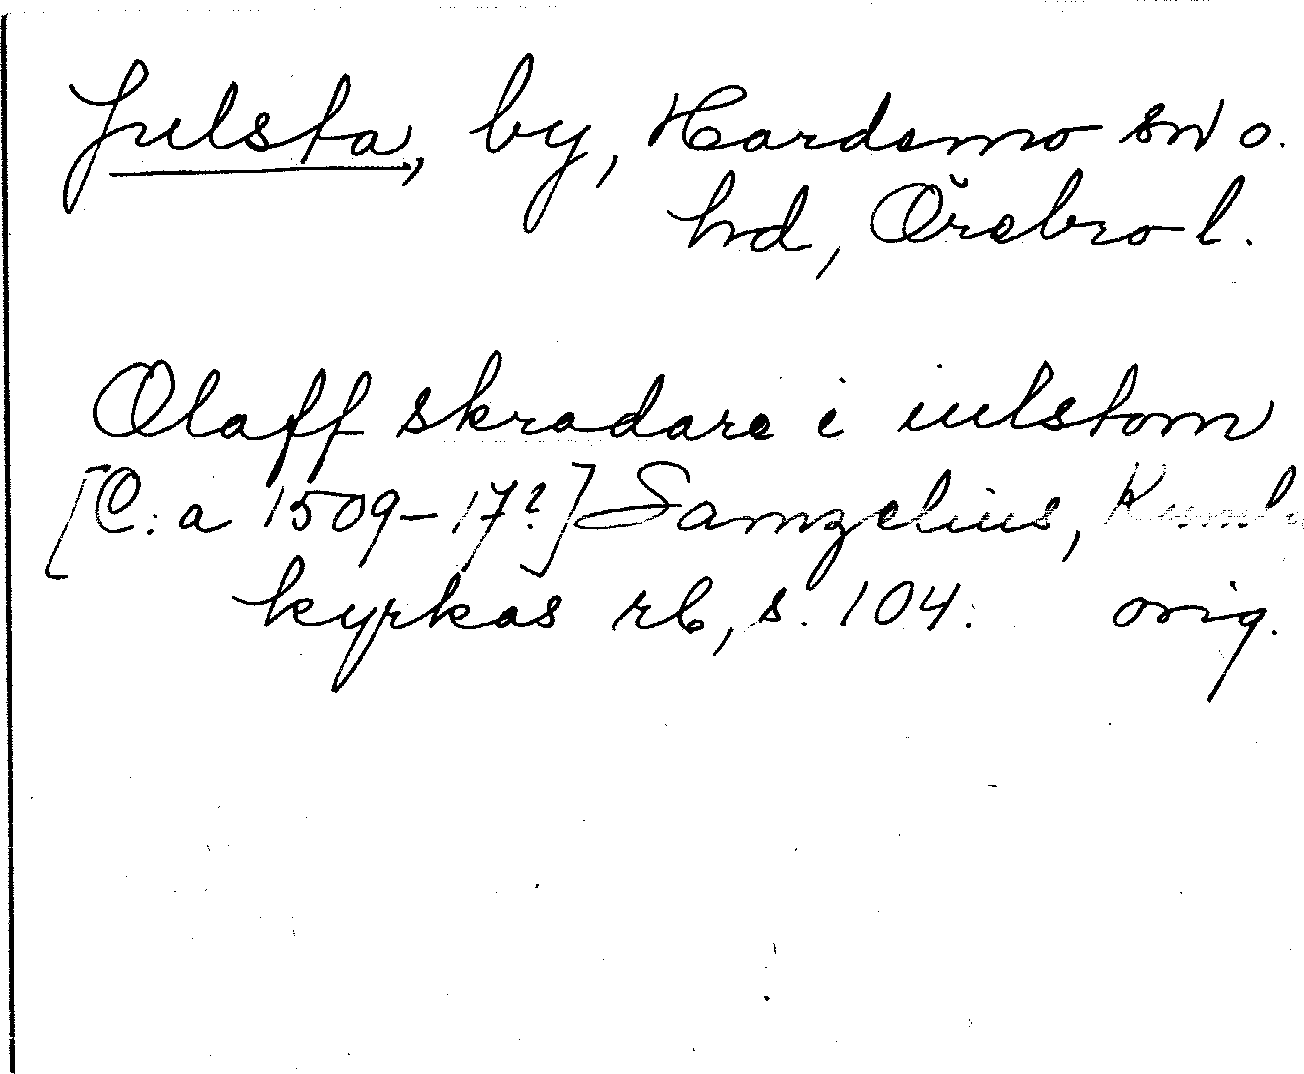 Julsta, by, Hardemo sn o.
hd, Örebro l.
Olaff skradare i iulstom
[C:a 1509–17?] Samzelius, Kumla
kyrkas rb, s. 104. orig.